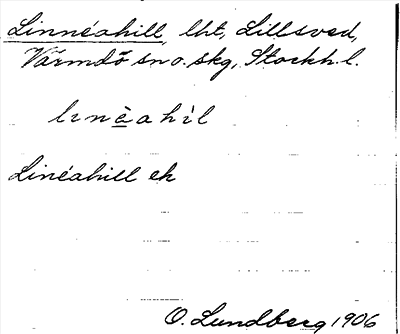 Linnéahill, lht, Lillsved,
Värmdö sn o. skg, Stockh. l.
linèahìl
Linéahill ek
O. Lundberg 1906